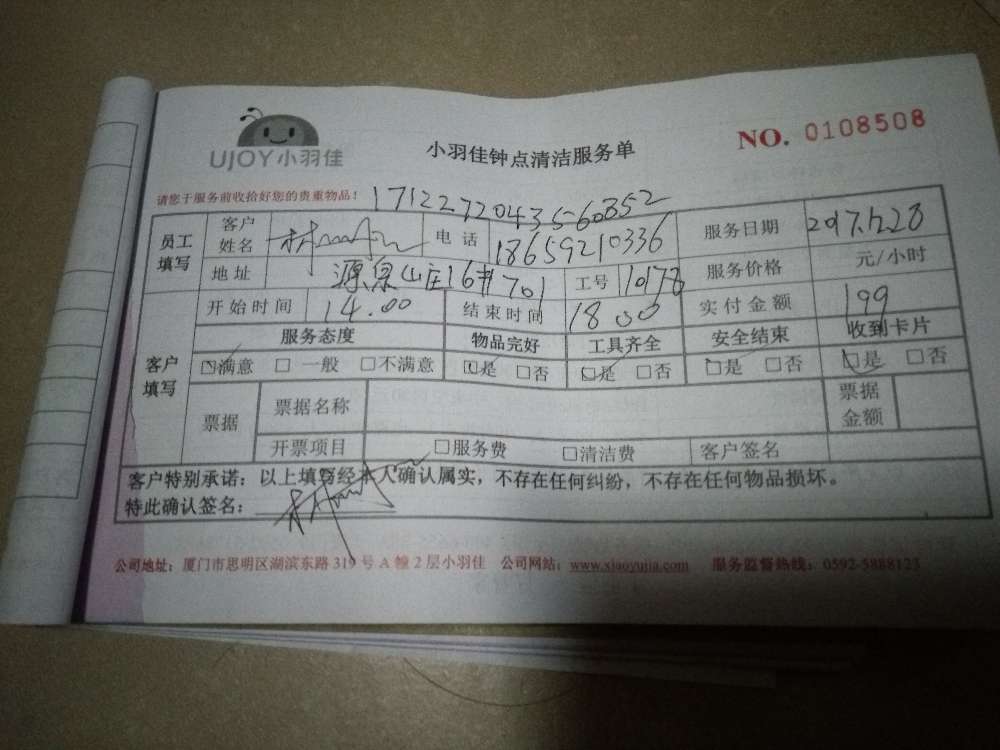 UJOY小羽佳
小羽佳钟点清洁服务单
NO. 0108508
请您于服务前收拾好您的贵重物品!
17122720435560352
员工填写 客户姓名 林 电话 18659210336 服务日期 2017.12.28
地址 源泉山庄16#701 工号 10178 服务价格 元/小时
开始时间 14.00 结束时间 18 00 实付金额 199
客户填写 服务态度 物品完好 工具齐全 安全结束 收到卡片
☑满意 □一般 □不满意 ☑是 □否 ☑是 □否 ☑是 □否 ☑是 □否
票据 票据名称 票据金额
开票项目 □服务费 □清洁费 客户签名
客户特别承诺：以上填写经本人确认属实，不存在任何纠纷，不存在任何物品损坏。
特此确认签名： 林
公司地址：厦门市思明区湖滨东路 319 号 A 幢 2 层小羽佳 公司网站：www.xiaoyujia.com 服务监督热线：0592-5888123